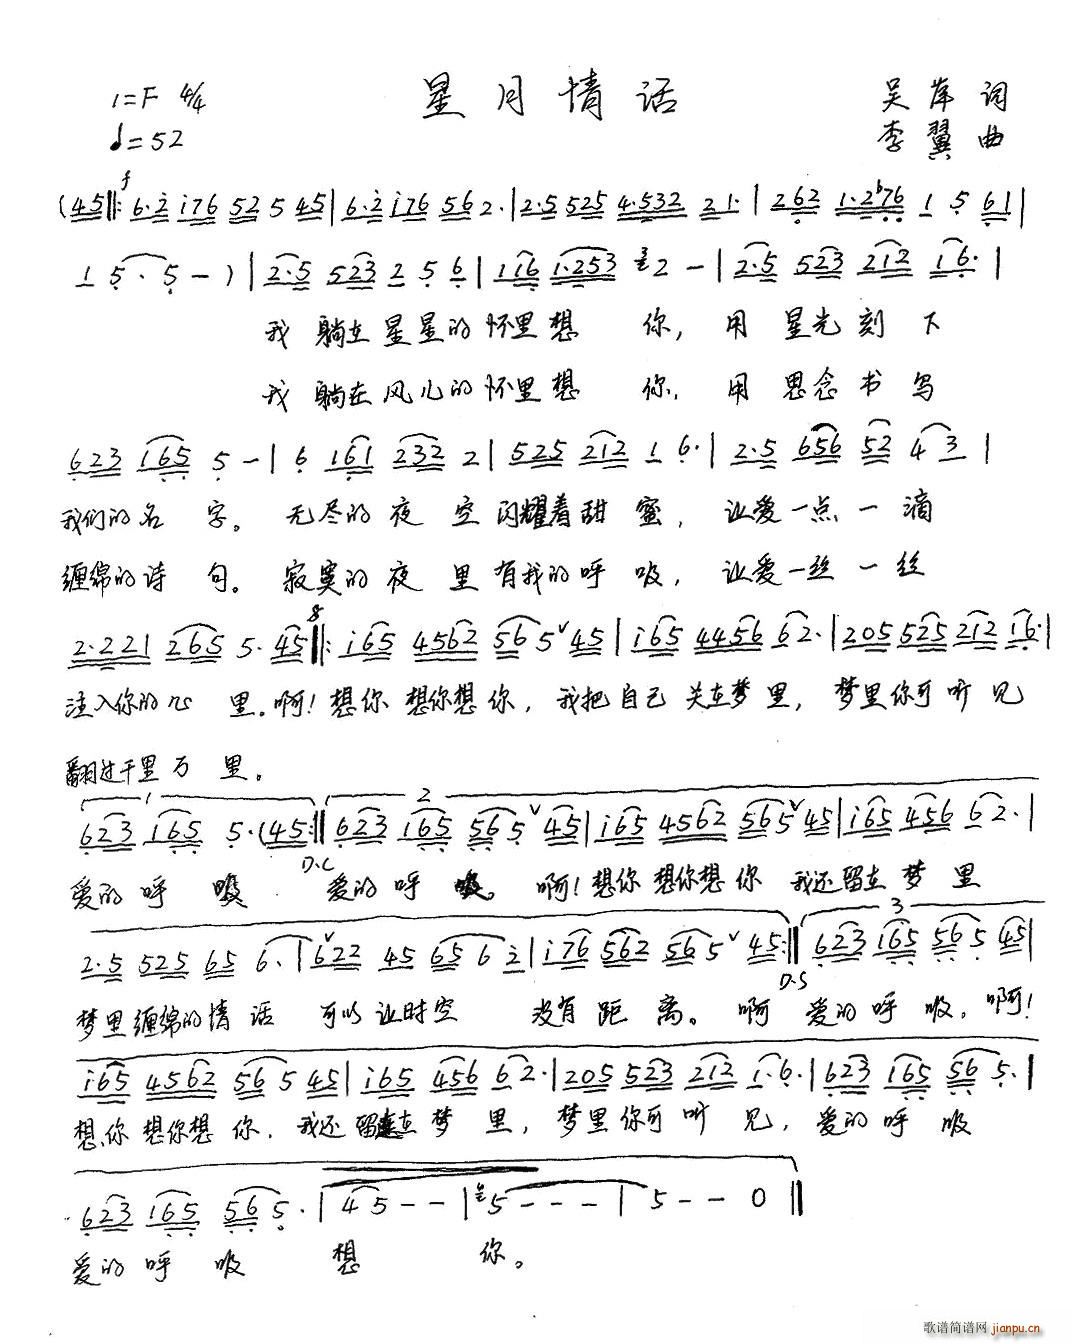 1=F 4/4 星月情话 吴岸 词
♩=52 李翼 曲
f
(45‖: 6·2 i76 52 5 45 | 6·2 i76 56 2· | 2·5 525 4·532 21· | 262 1·2♭76 1 5 61 |
1 5· 5 - ) | 2·5 523 2 5 6 | 116 1·253 2 - | 2·5 523 212 16· |
我 躺在 星星的 怀里 想 你, 用 星光 刻 下
我 躺在 风儿的 怀里 想 你, 用 思念 书 写
623 165 5 - | 6 161 232 2 | 525 212 1 6· | 2·5 656 52 4 3 |
我们的 名 字。 无尽的 夜 空 闪耀着 甜 蜜, 让爱 一点 一 滴
缠绵的 诗 句。 寂寞的 夜 里 有我的 呼 吸, 让爱 一丝 一 丝
2·221 265 5· 45 ‖: i65 4562 56 5 ∨ 45 | i65 4456 62· | 205 525 212 16· |
注入你的 心 里。啊! 想你 想你想 你, 我把 自己 关在 梦 里, 梦里 你可 听 见
翻过千里 万 里。
1 2
623 165 5· (45 :‖ 623 165 56 5 ∨ 45 | i65 4562 56 5 ∨ 45 | i65 456 62· |
D.C
爱的 呼 吸 爱的 呼 吸。 啊! 想你 想你想 你 我还 留在 梦 里
3
2·5 525 65 6· | i ∨ 22 45 65 6 2 | i76 562 56 5 ∨ 45 :‖ 623 165 56 5 45 |
D.S
梦里 缠绵的 情 话 可以 让时空 没有 距 离。 啊 爱的 呼 吸, 啊!
i65 4562 56 5 45 | i65 456 62· | 205 523 212 1·6· | 623 165 56 5· |
想你 想你想 你, 我还 留在 梦 里, 梦里 你可 听 见, 爱的 呼 吸
623 165 56 5· | 45 - - | 5 - - - | 5 - - 0 ‖
爱的 呼 吸 想 你。
歌谱简谱网
jianpu.cn